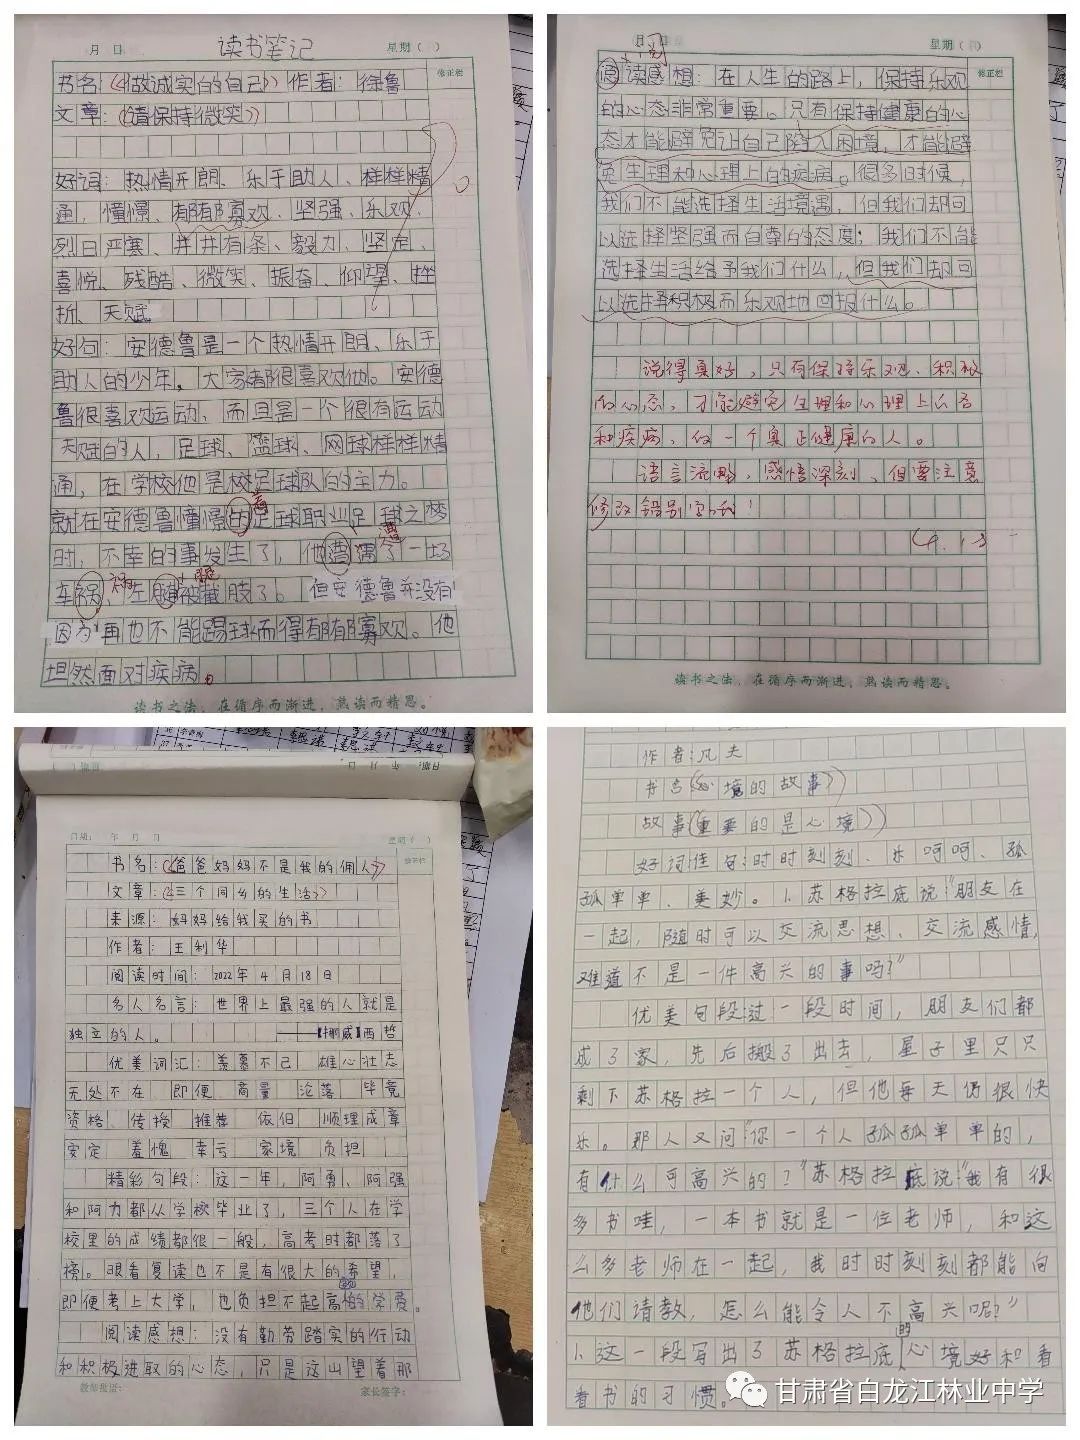 读书笔记
月 日
星期（ ）
修正栏
书名：《做诚实的自己》作者：徐鲁
文章：《请保持微笑》
好词：热情开朗、乐于助人、样样精
通，憧憬、郁郁寡欢、坚强、乐观、
烈日严寒、井井有条、毅力、坚定、
喜悦、残酷、微笑、振奋、仰望、挫
折、天赋
好句：安德鲁是一个热情开朗、乐于
助人的少年，大家都很喜欢他。安德
鲁很喜欢运动、而且是一个很有运动
天赋的人，足球、篮球、网球样样精
通，在学校他是校足球队的主力。
就在安德鲁憧憬的足球职业足球之梦
着
时，不幸的事发生了，他遭遇了一场
遭
车祸、左腿被截肢了。但安德鲁并没有
祸
腿
因为再也不能踢球而得郁郁寡欢。他
坦然面对疾病。
读书之法，在循序而渐进，熟读而精思。
月 日
星期（ ）
修正栏
阅读感想：在人生的路上，保持乐观
的心态非常重要。只有保持健康的心
态才能避免让自己陷入困境，才能避
免生理和心理上的疾病。很多时候，
我们不能选择生活境遇，但我们却可
以选择坚强而自尊的态度；我们不能
选择生活给予我们什么，但我们却可
以选择积极而乐观地回报什么。
说得真好，只有保持乐观、积极
的心态，才能避免生理和心理上的
和疾病，做一个真正健康的人。
语言流畅，感悟深刻，但要注意
修改错别字哦！
读书之法，在循序而渐进，熟读而精思。
日期： 年 月 日
星期（ ）
修正栏
书名：《爸爸妈妈不是我的佣人》
文章：《三个同乡的生活》
来源：妈妈给我买的书
作者：王利华
阅读时间：2022年4月18日
名人名言：世界上最强的人就是
独立的人。 ——【挪威】西哲
优美词汇：羡慕不已 雄心壮志
无处不在 即便 商量 沦落 毕竟
资格、传授 推荐 依旧 顺理成章
安定 羞愧 幸亏 家境 负担
精彩句段：这一年，阿勇、阿强
和阿力都从学校毕业了，三个人在学
校里的成绩都很一般，高考时都落了
榜。眼看复读也不是有很大的希望，
即便考上大学，也负担不起高的学费。
阅读感想：没有勤劳踏实的行动
和积极进取的心态，只是这山望着那
教师批语：
家长签字：
作者：凡夫
书名《心境的故事》
故事《重要的是心境》
好词佳句：时时刻刻、乐呵呵、孤
孤单单、美妙。1.苏格拉底说“朋友在
一起，随时可以交流思想、交流感情，
难道不是一件高兴的事吗？”
优美句段：过一段时间，朋友们都
成了家，先后搬了出去，屋子里只只
剩下苏格拉一个人，但他每天仍很快
乐。那人又问“你一个人孤孤单单的，
有什么可高兴的？”苏格拉底说“我有很
多书哇，一本书就是一位老师，和这
么多老师在一起，我时时刻刻都能向
他们请教，怎么能令人不高兴呢？”
的
1.这一段写出了苏格拉底心境好和看
看书的习惯。
甘肃省白龙江林业中学